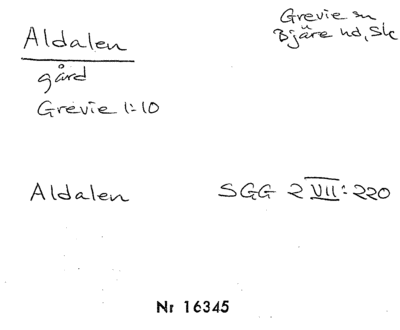 Grevie sn
Bjäre hd, Sk
Aldalen
gård
Grevie 1:10
Aldalen SGG 2 VII: 220
Nr 16345